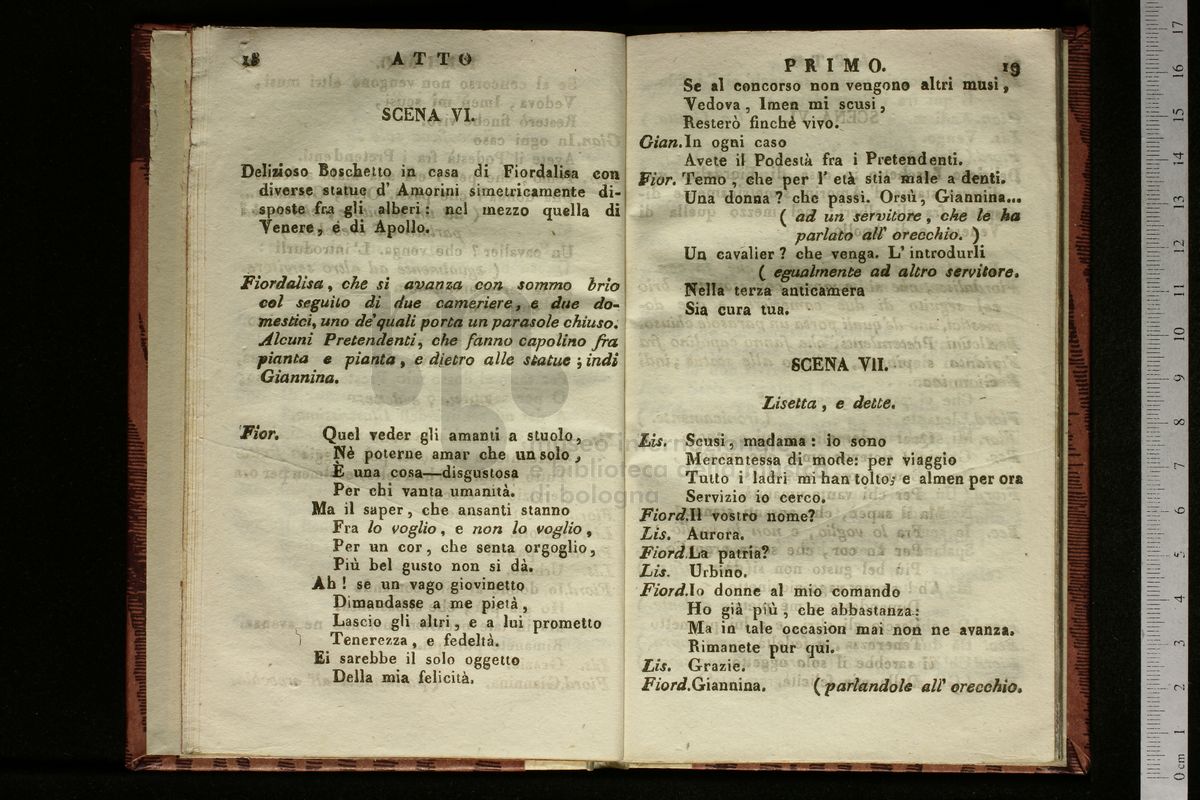 18 ATTO
SCENA VI.
Delizioso Boschetto in casa di Fiordalisa con
diverse statue d' Amorini simetricamente di-
sposte fra gli alberi: nel mezzo quella di
Venere, e di Apollo.
Fiordalisa, che si avanza con sommo brio
col seguito di due cameriere, e due do-
mestici, uno de' quali porta un parasole chiuso.
Alcuni Pretendenti, che fanno capolino fra
pianta e pianta, e dietro alle statue; indi
Giannina.
Fior. Quel veder gli amanti a stuolo,
Nè poterne amar che un solo,
È una cosa—disgustosa
Per chi vanta umanità.
Ma il saper, che ansanti stanno
Fra lo voglio, e non lo voglio,
Per un cor, che senta orgoglio,
Più bel gusto non si dà.
Ah! se un vago giovinetto
Dimandasse a me pietà,
Lascio gli altri, e a lui prometto
Tenerezza, e fedeltà.
Ei sarebbe il solo oggetto
Della mia felicità.
PRIMO. 19
Se al concorso non vengono altri musi,
Vedova, Imen mi scusi,
Resterò finchè vivo.
Gian. In ogni caso
Avete il Podestà fra i Pretendenti.
Fior. Temo, che per l' età stia male a denti.
Una donna? che passi. Orsù, Giannina...
( ad un servitore, che le ha
parlato all' orecchio. )
Un cavalier? che venga. L' introdurli
( egualmente ad altro servitore.
Nella terza anticamera
Sia cura tua.
SCENA VII.
Lisetta, e dette.
Lis. Scusi, madama: io sono
Mercantessa di mode: per viaggio
Tutto i ladri mi han tolto, e almen per ora
Servizio io cerco.
Fiord. Il vostro nome?
Lis. Aurora.
Fiord. La patria?
Lis. Urbino.
Fiord. Io donne al mio comando
Ho già più, che abbastanza:
Ma in tale occasion mai non ne avanza.
Rimanete pur qui.
Lis. Grazie.
Fiord. Giannina. (parlandole all' orecchio.
museo internazionale
e biblioteca della musica
di bologna
0 cm 1 2 3 4 5 6 7 8 9 10 11 12 13 14 15 16 17